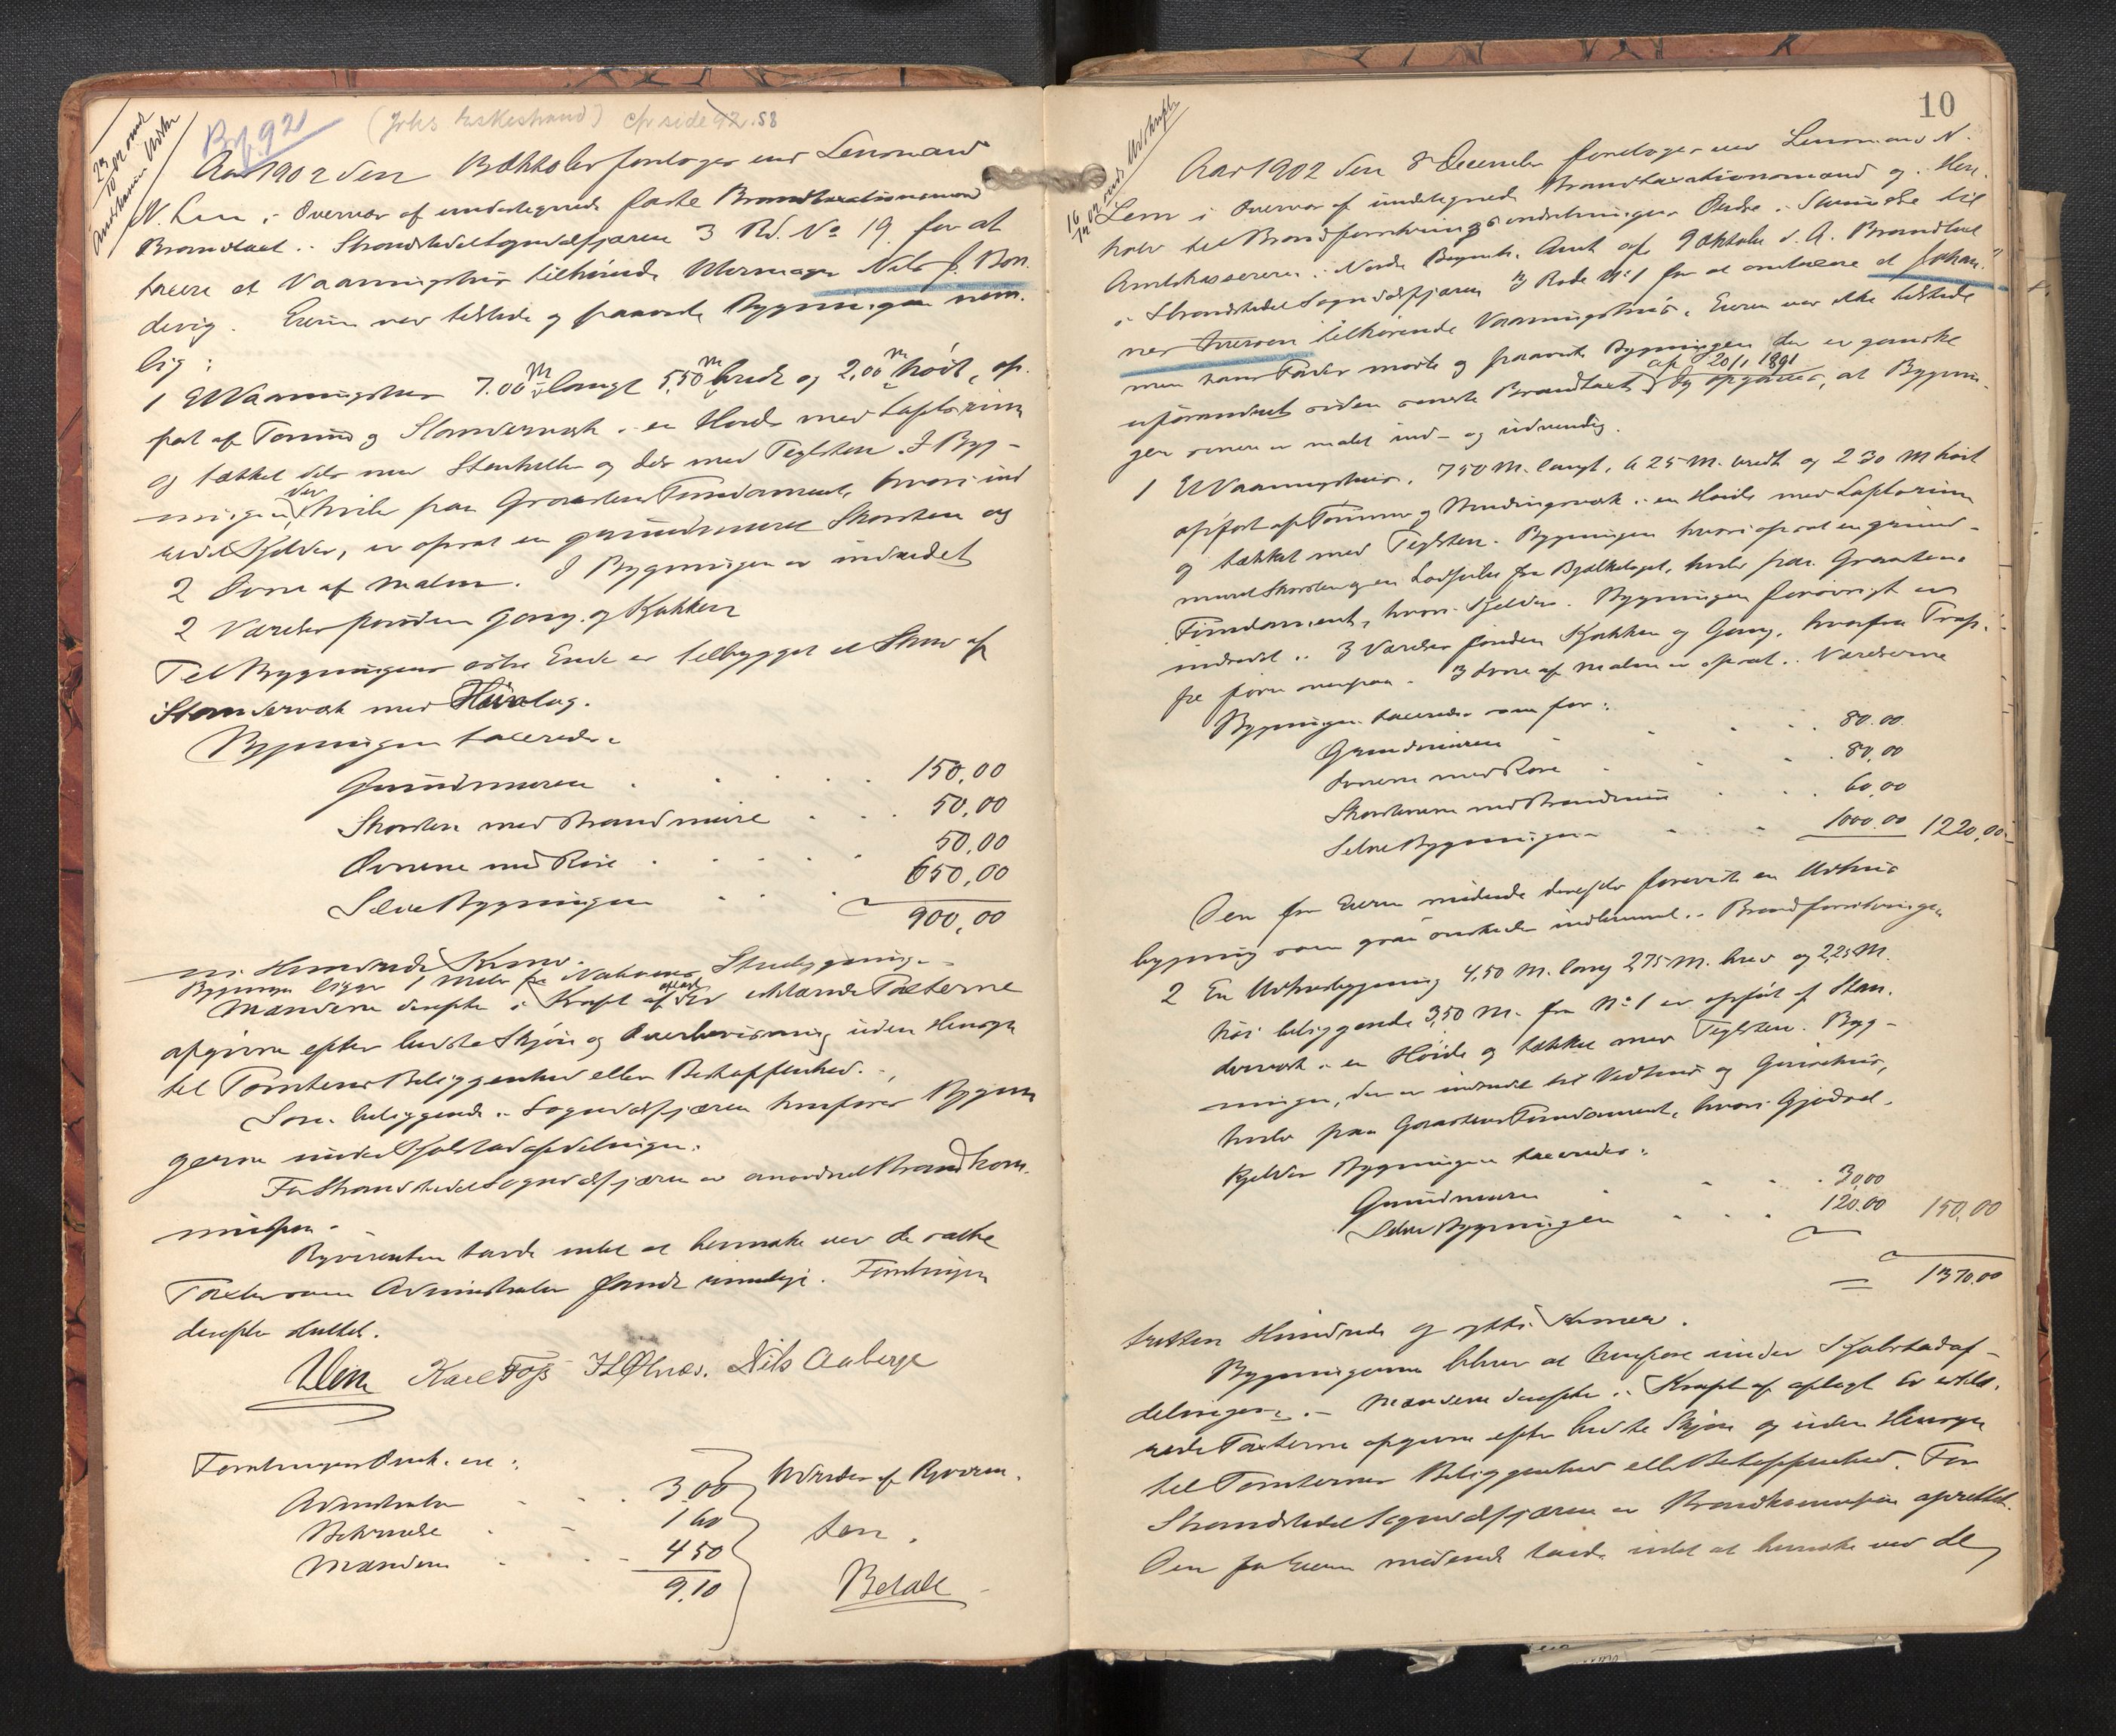 23/10 02 omd
Amtskassen Udskr
Brf. 921
(Johs Eskestrand) cfr side 92. 58
Aar 1902 den 8 Oktober foretoges ved Lensmand
N. Lem i Overvær af undertegnede faste Brandtaxationsmænd
Brandtaxt i Strandstedet Sogndalsfjæren 3 Rd. No 19 for at
taxere et Vaaningshus tilhørende Uhrmager Nils J. Bon
devig. Eieren var tilstede og paaviste Bygningen nem-
lig:
1 Et Vaaningshus 7.00 M langt 5,50 M bredt og 2,00 M høit, op-
ført af Tømmer og Standerværk i en Høide med Lofterum
og tækket dels med Stenheller og dels med Teglsten. I Byg-
ningen, der hviler paa Graastens Fundament, hvori ind
redet Kjelder, er opsat en grundmuret Skorsten og
2 Ovne af Malm. I Bygningen er indredet
2 Værelser foruden Gang og Kjøkken
Til Bygningens østre Ende er tilbygget et Skur af
Standerværk med Halvtag.
Bygningen taxeredes:
Grundmuren . . . . . 150,00
Skorsten med Brandmure . . . 50,00
Ovnene med Rør . . . . 50,00
Selve Bygningen . . . 650,00
900,00
ni Hundrede Kroner.
Bygningen ligger 1 Meter fra Naboens Stuebygning.
Mændene derefter i Kraft af aflagt Ed erklærede Taxterne
afgivne efter bedste Skjøn og Overbevisning uden Hensyn
til Tomternes Beliggenhed eller Beskaffenhed.
Som beliggende i Sogndalsfjæren henføres Bygnin
gerne under Kjøbstadafdelingen.
For Strandstedet Sogndalsfjæren er anordnet Brandkom-
mission.
Rekvirenten havde intet at bemærke ved de satte
Taxter som Administrator fandt rimelige. Forretningen
derefter sluttet.
NLem Karl Foss H Ølnæs. Nils Aaberge
Forretningens Omk. ere:
Administrator . . . 3,00
Befordring . . 1 60
Mændene . . . 4 50
9,10
Udredes af Rekviren-
ten.
Betalt
10
16/12 02 omd Udskrift
Aar 1902 den 8 December foretoges ved Lensmand N.
Lem i Overvær af undertegnede Brandtaxationsmænd og i Hen-
hold til Brandforsikringsindretningens Ordre i Skrivelse til
Amtskassereren i Nordre Bergenh. Amt af 9 Oktober d. A. Brandtaxt
i Strandstedet Sogndalsfjæren 3 Rode No 1 for at omtaxere et Johan-
nes Iversen tilhørende Vaaningshus. Eieren var ikke tilstede
men hans Fader mødte og paaviste Bygningen der er ganske
uforandret siden seneste Brandtaxt af 20/1 1891 og opgaves, at Bygnin-
gen senere er malet ind- og udvendig.
1 Et Vaaningshus, 7 50 M. langt, 6 25 M. bredt og 2 30 M høit
opført af Tømmer og Bindingsværk i en Høide med Lofterum
og tækket med Teglsten. Bygningen hvori opsat en grund-
muret Skorsten og en Lodpibe fra Bjælkelaget, hviler paa Graastens
Fundament, hvori Kjelder. Bygningen forøvrigt er
indredet i 3 Værelser foruden Kjøkken og Gang, hvorfra Trap-
pe fører ovenpaa. 3 Ovne af Malm er opsat i Værelserne
Bygningen taxeredes som før:
Grundmuren . . . . 80.00
Ovnene med Rør . . . 80,00
Skorstenene med Brandmure . . 60,00
Selve Bygningen . . . 1000.00 1220,00
Den for Eieren mødende derefter foreviste en Udhus
bygning som ogsaa ønskedes indlemmet i Brandforsikringen
2 En Udhusbygning 4,50 M. lang 2,75 M. bred og 2,25 M.
høi beliggende 3,50 M. fra No 1 er opført af Stan-
derværk i en Høide og tækket med Teglsten. Byg-
ningen, der er indredet til Vedhus og Grisehus,
hviler paa Graastens Fundament, hvori Gjødsel-
kjelder Bygningen taxeredes:
Grundmuren . . . 30,00
Selve Bygningen . . . 120.00 150,00
1370.00
tretten Hundrede og sytti Kroner.
Bygningerne bliver at henføre under Kjøbstadaf-
delingen. - Mændene derefter i Kraft af aflagt Ed erklæ-
rede Taxterne afgivne efter bedste Skjøn og uden Hensyn
til Tomternes Beliggenhed eller Beskaffenhed. For
Strandstedet Sogndalsfjæren er Brandkommission oprettet.
Den for Eieren mødende havde intet at bemærke ved de